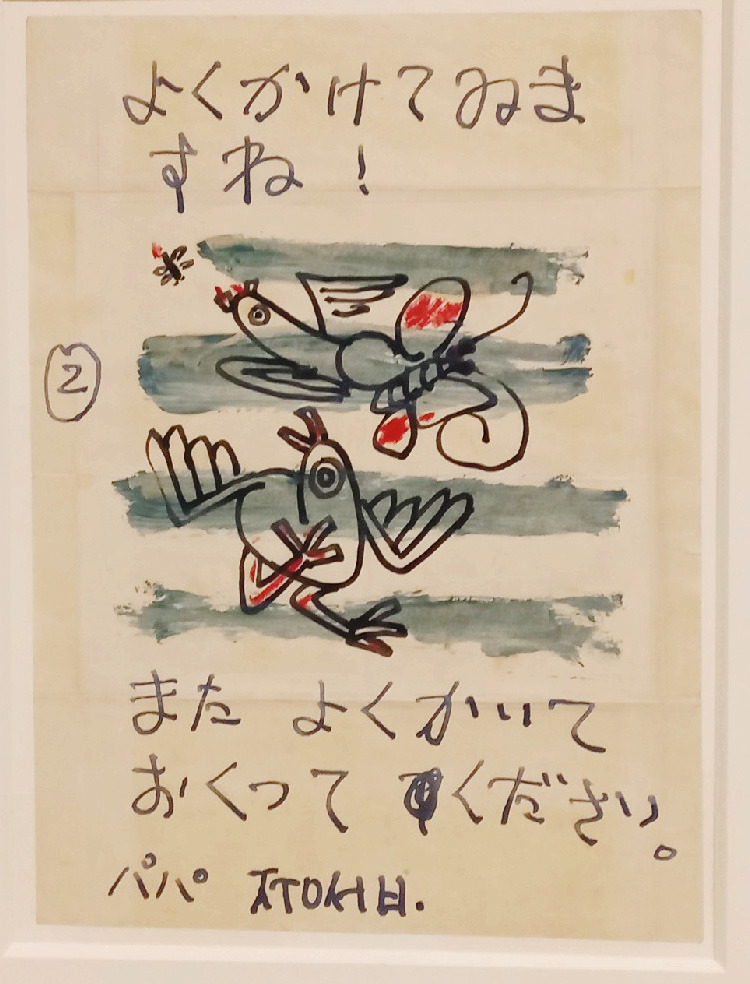 よくかけてゐま
すね！
②
また よくかいて
おくって ください。
パパ ㅈㅜㅇㅅㅓㅂ.